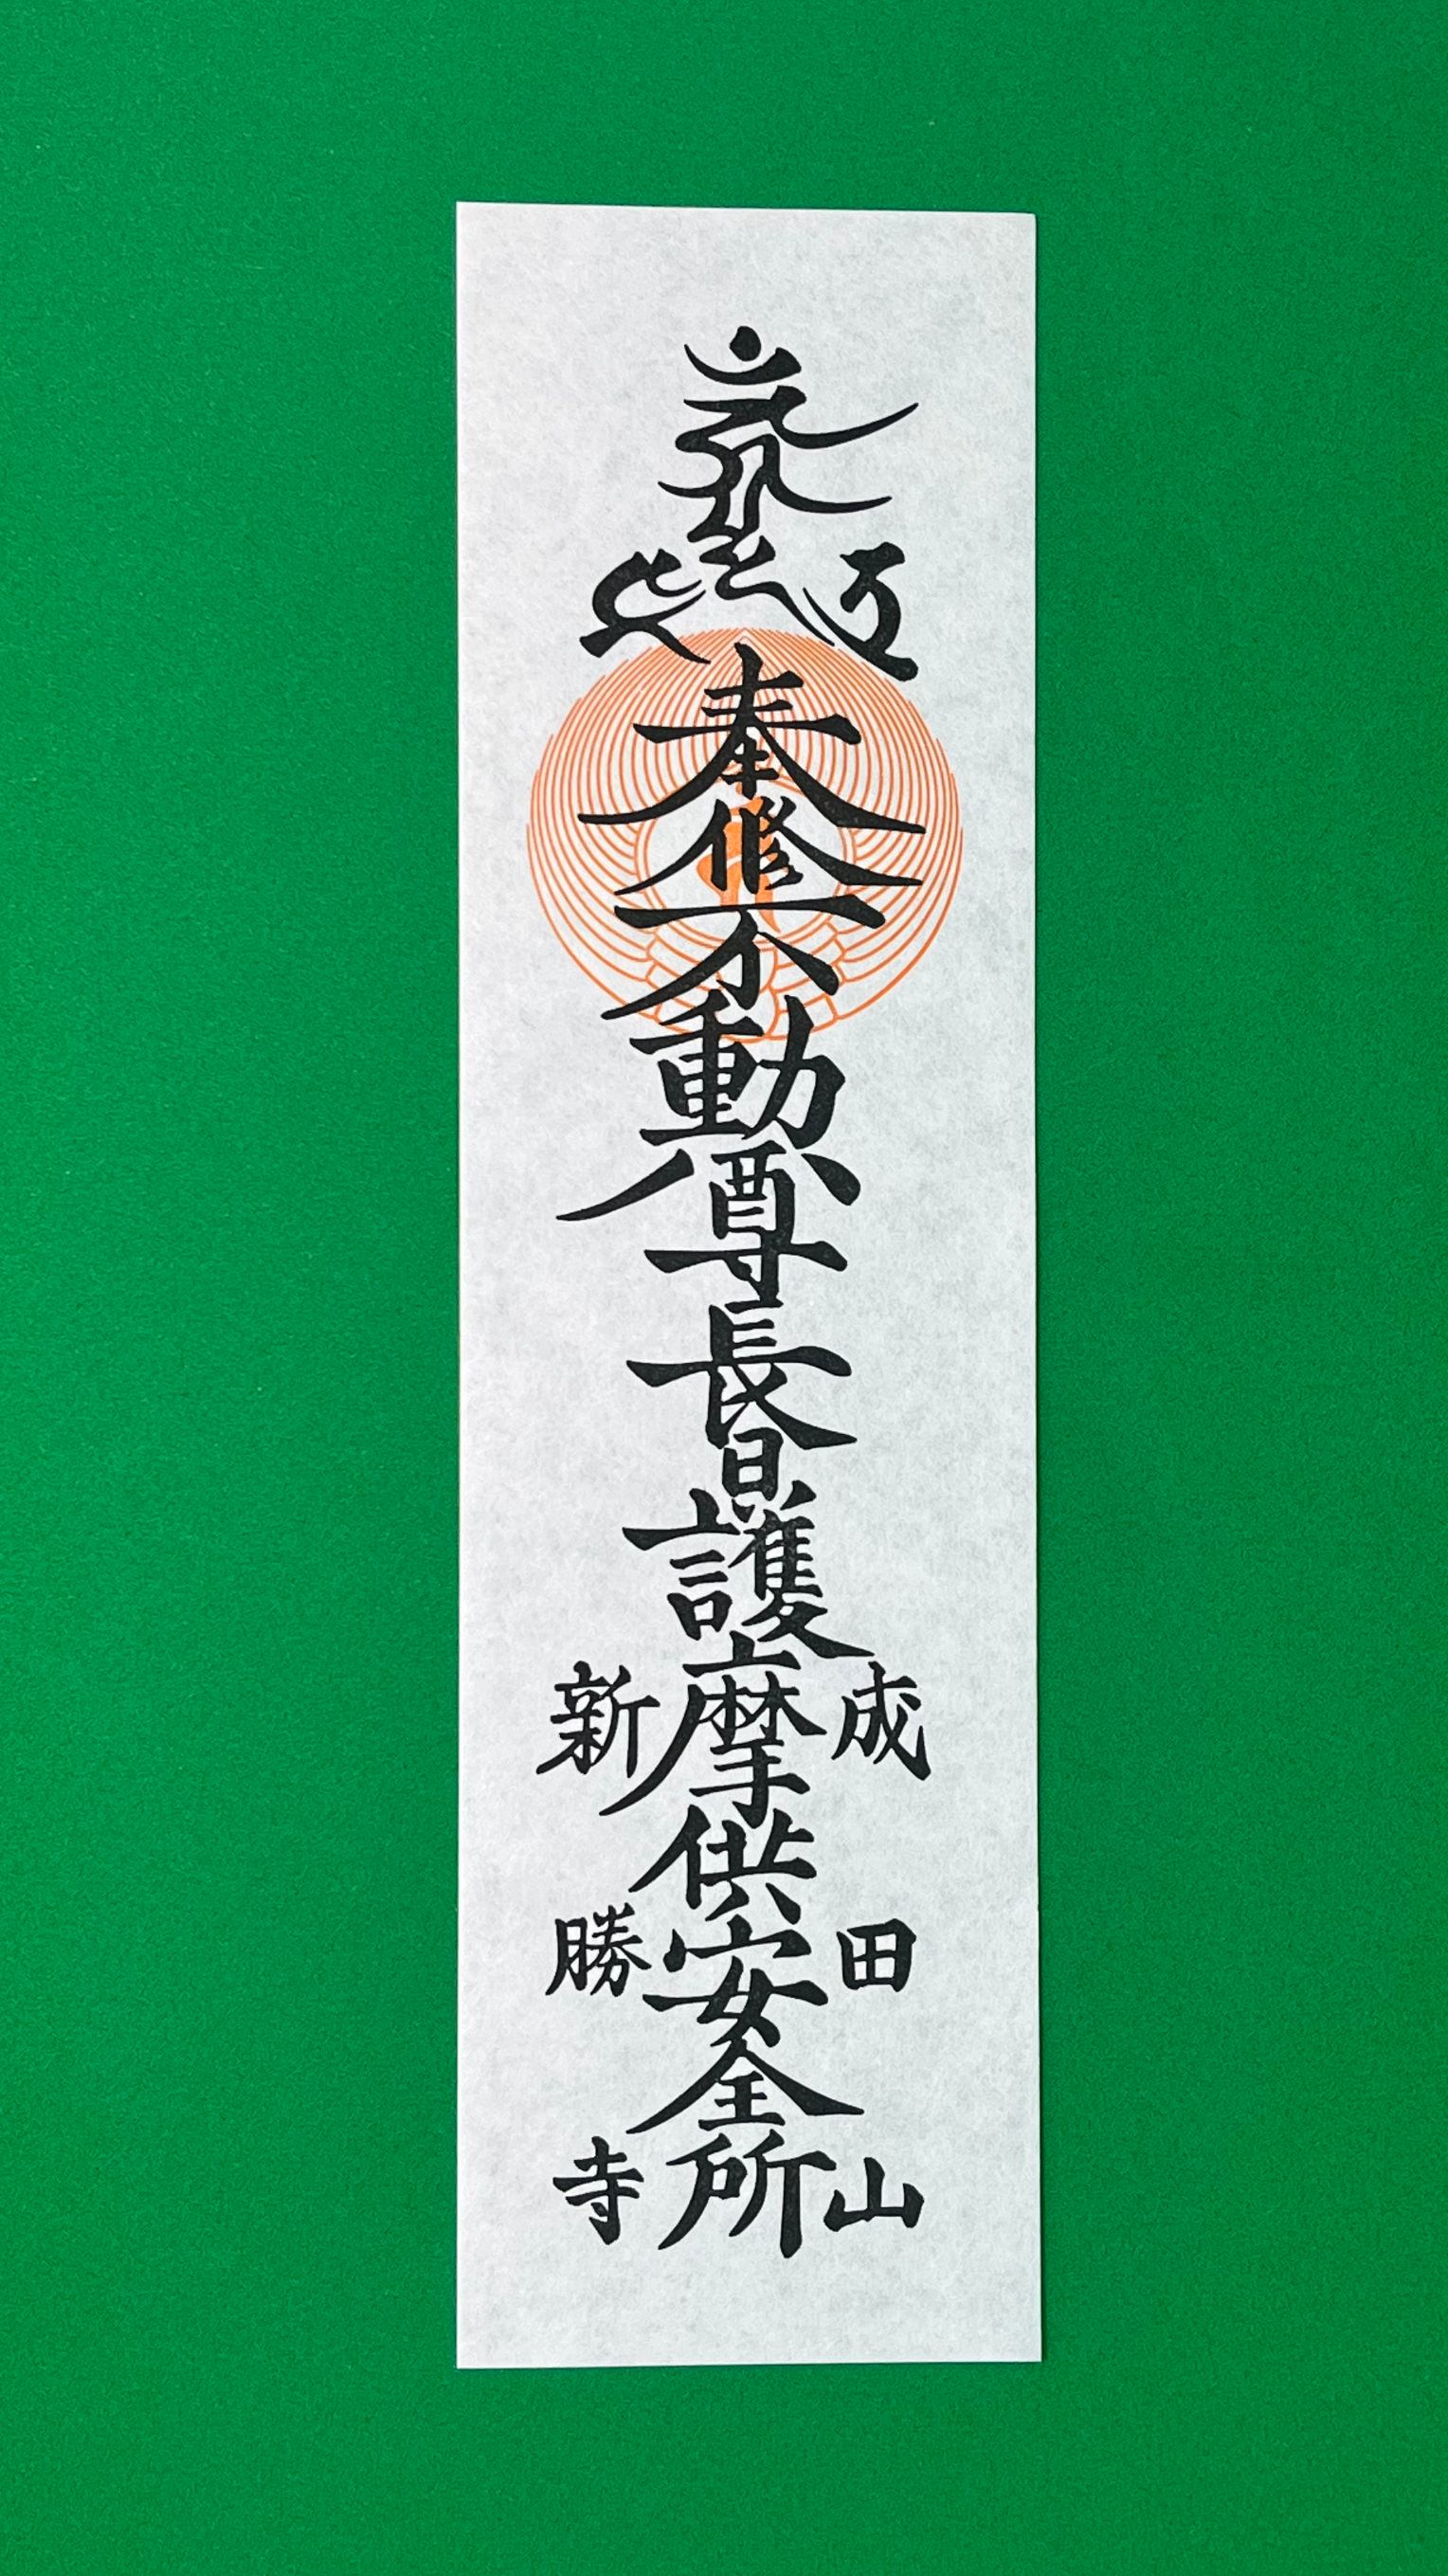 奉修不動尊長日護摩供安全所
成田山
新勝寺